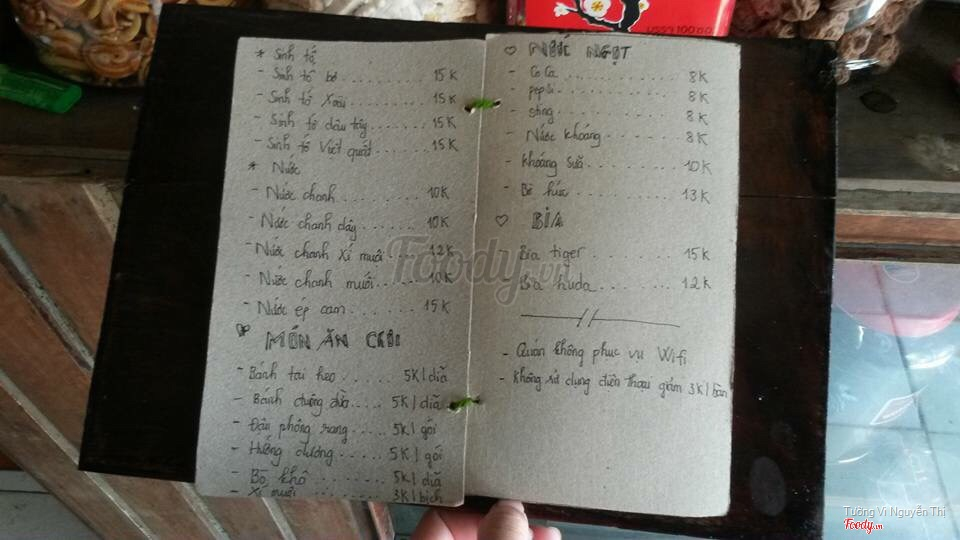 * Sinh tố
- Sinh tố bơ ........ 15K
- Sinh tố Xoài ....... 15K
- Sinh tố dâu tây ....... 15K
- Sinh tố Việt quất ....... 15K
* Nước
- Nước chanh ........ 10K
- Nước chanh dây ....... 10K
- Nước chanh xí muội .... 12K
- Nước chanh muối ....... 10K
- Nước ép cam ........ 15K
MÓN ĂN CHƠI
- Bánh tai heo ...... 5K/dĩa
- Bánh đường dừa ..... 5K/dĩa
- Đậu phộng rang ..... 5K/gói
- Hướng dương ...... 5K/gói
- Bò khô ........ 5K/dĩa
- Xí muội ....... 3K/bịch
♡ NƯỚC NGỌT
- CoCa ............ 8K
- pepsi ............ 8K
- sting ............ 8K
- Nước khoáng ........ 8K
- Khoáng sữa ......... 10K
- Bò húc .......... 13K
♡ BIA
Bia tiger ......... 15K
Bia huda ......... 12K
- Quán không phục vụ Wifi
- Không sử dụng điện thoại giảm 3K/bàn
Foody.vn
Tường Vi Nguyễn Thị
Foody.vn